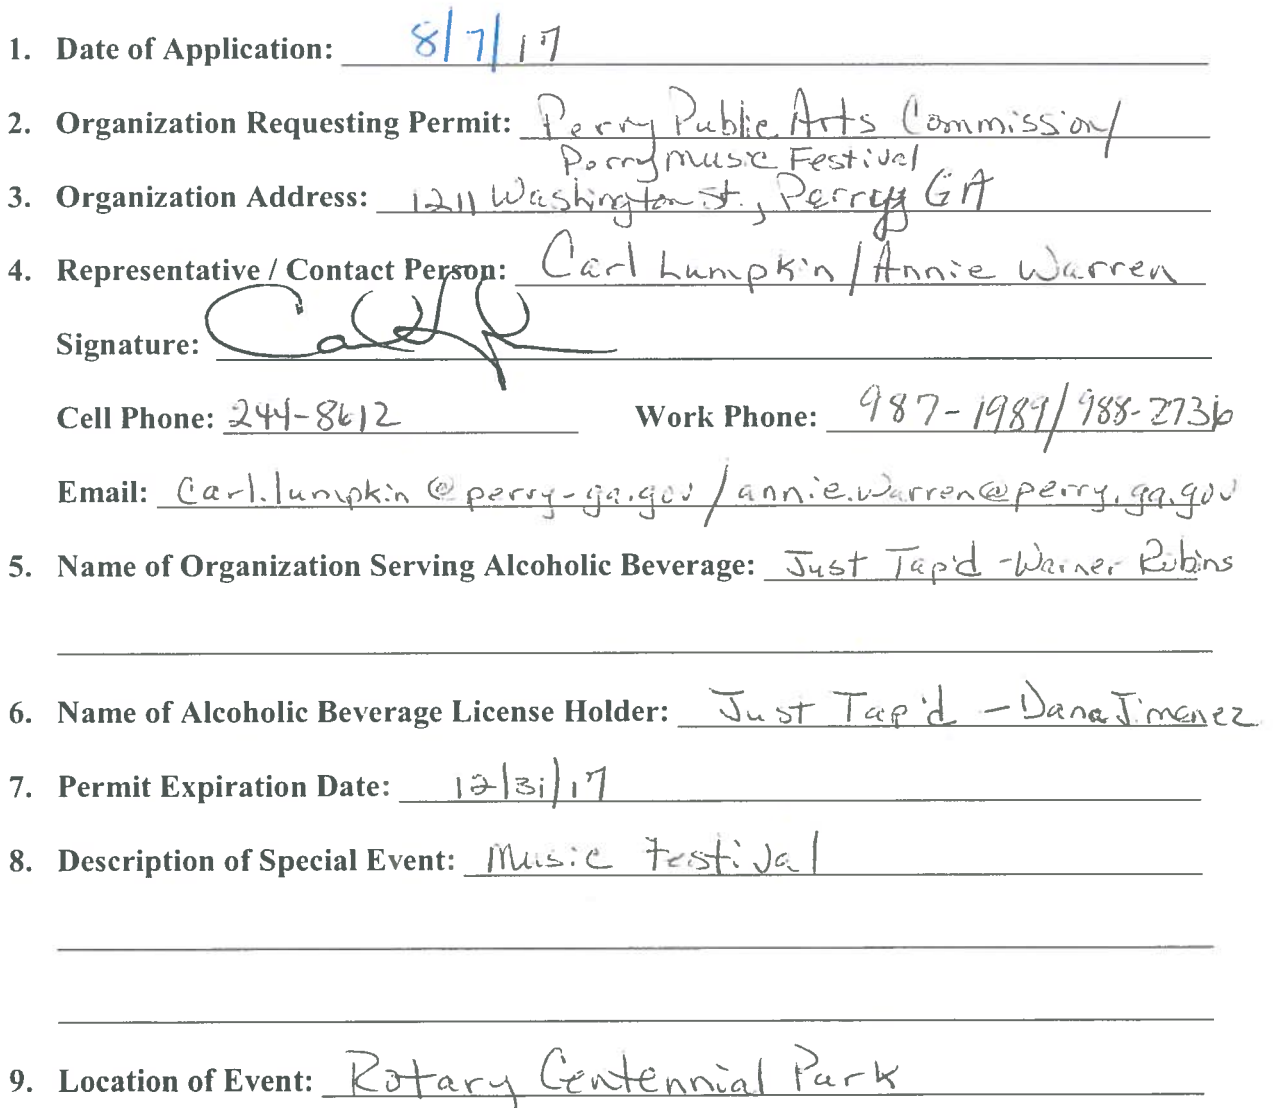 1. Date of Application: 8/7/17
2. Organization Requesting Permit: Perry Public Arts Commission/
Perry Music Festival
3. Organization Address: 1211 Washington St., Perry GA
4. Representative / Contact Person: Carl Lumpkin / Annie Warren
Signature:
Cell Phone: 244-8612 Work Phone: 987-1989/988-2736
Email: Carl.lumpkin@perry-ga.gov / annie.warren@perry.ga.gov
5. Name of Organization Serving Alcoholic Beverage: Just Tap'd - Warner Robins
6. Name of Alcoholic Beverage License Holder: Just Tap'd - Dana Jimenez
7. Permit Expiration Date: 12/31/17
8. Description of Special Event: Music Festival
9. Location of Event: Rotary Centennial Park